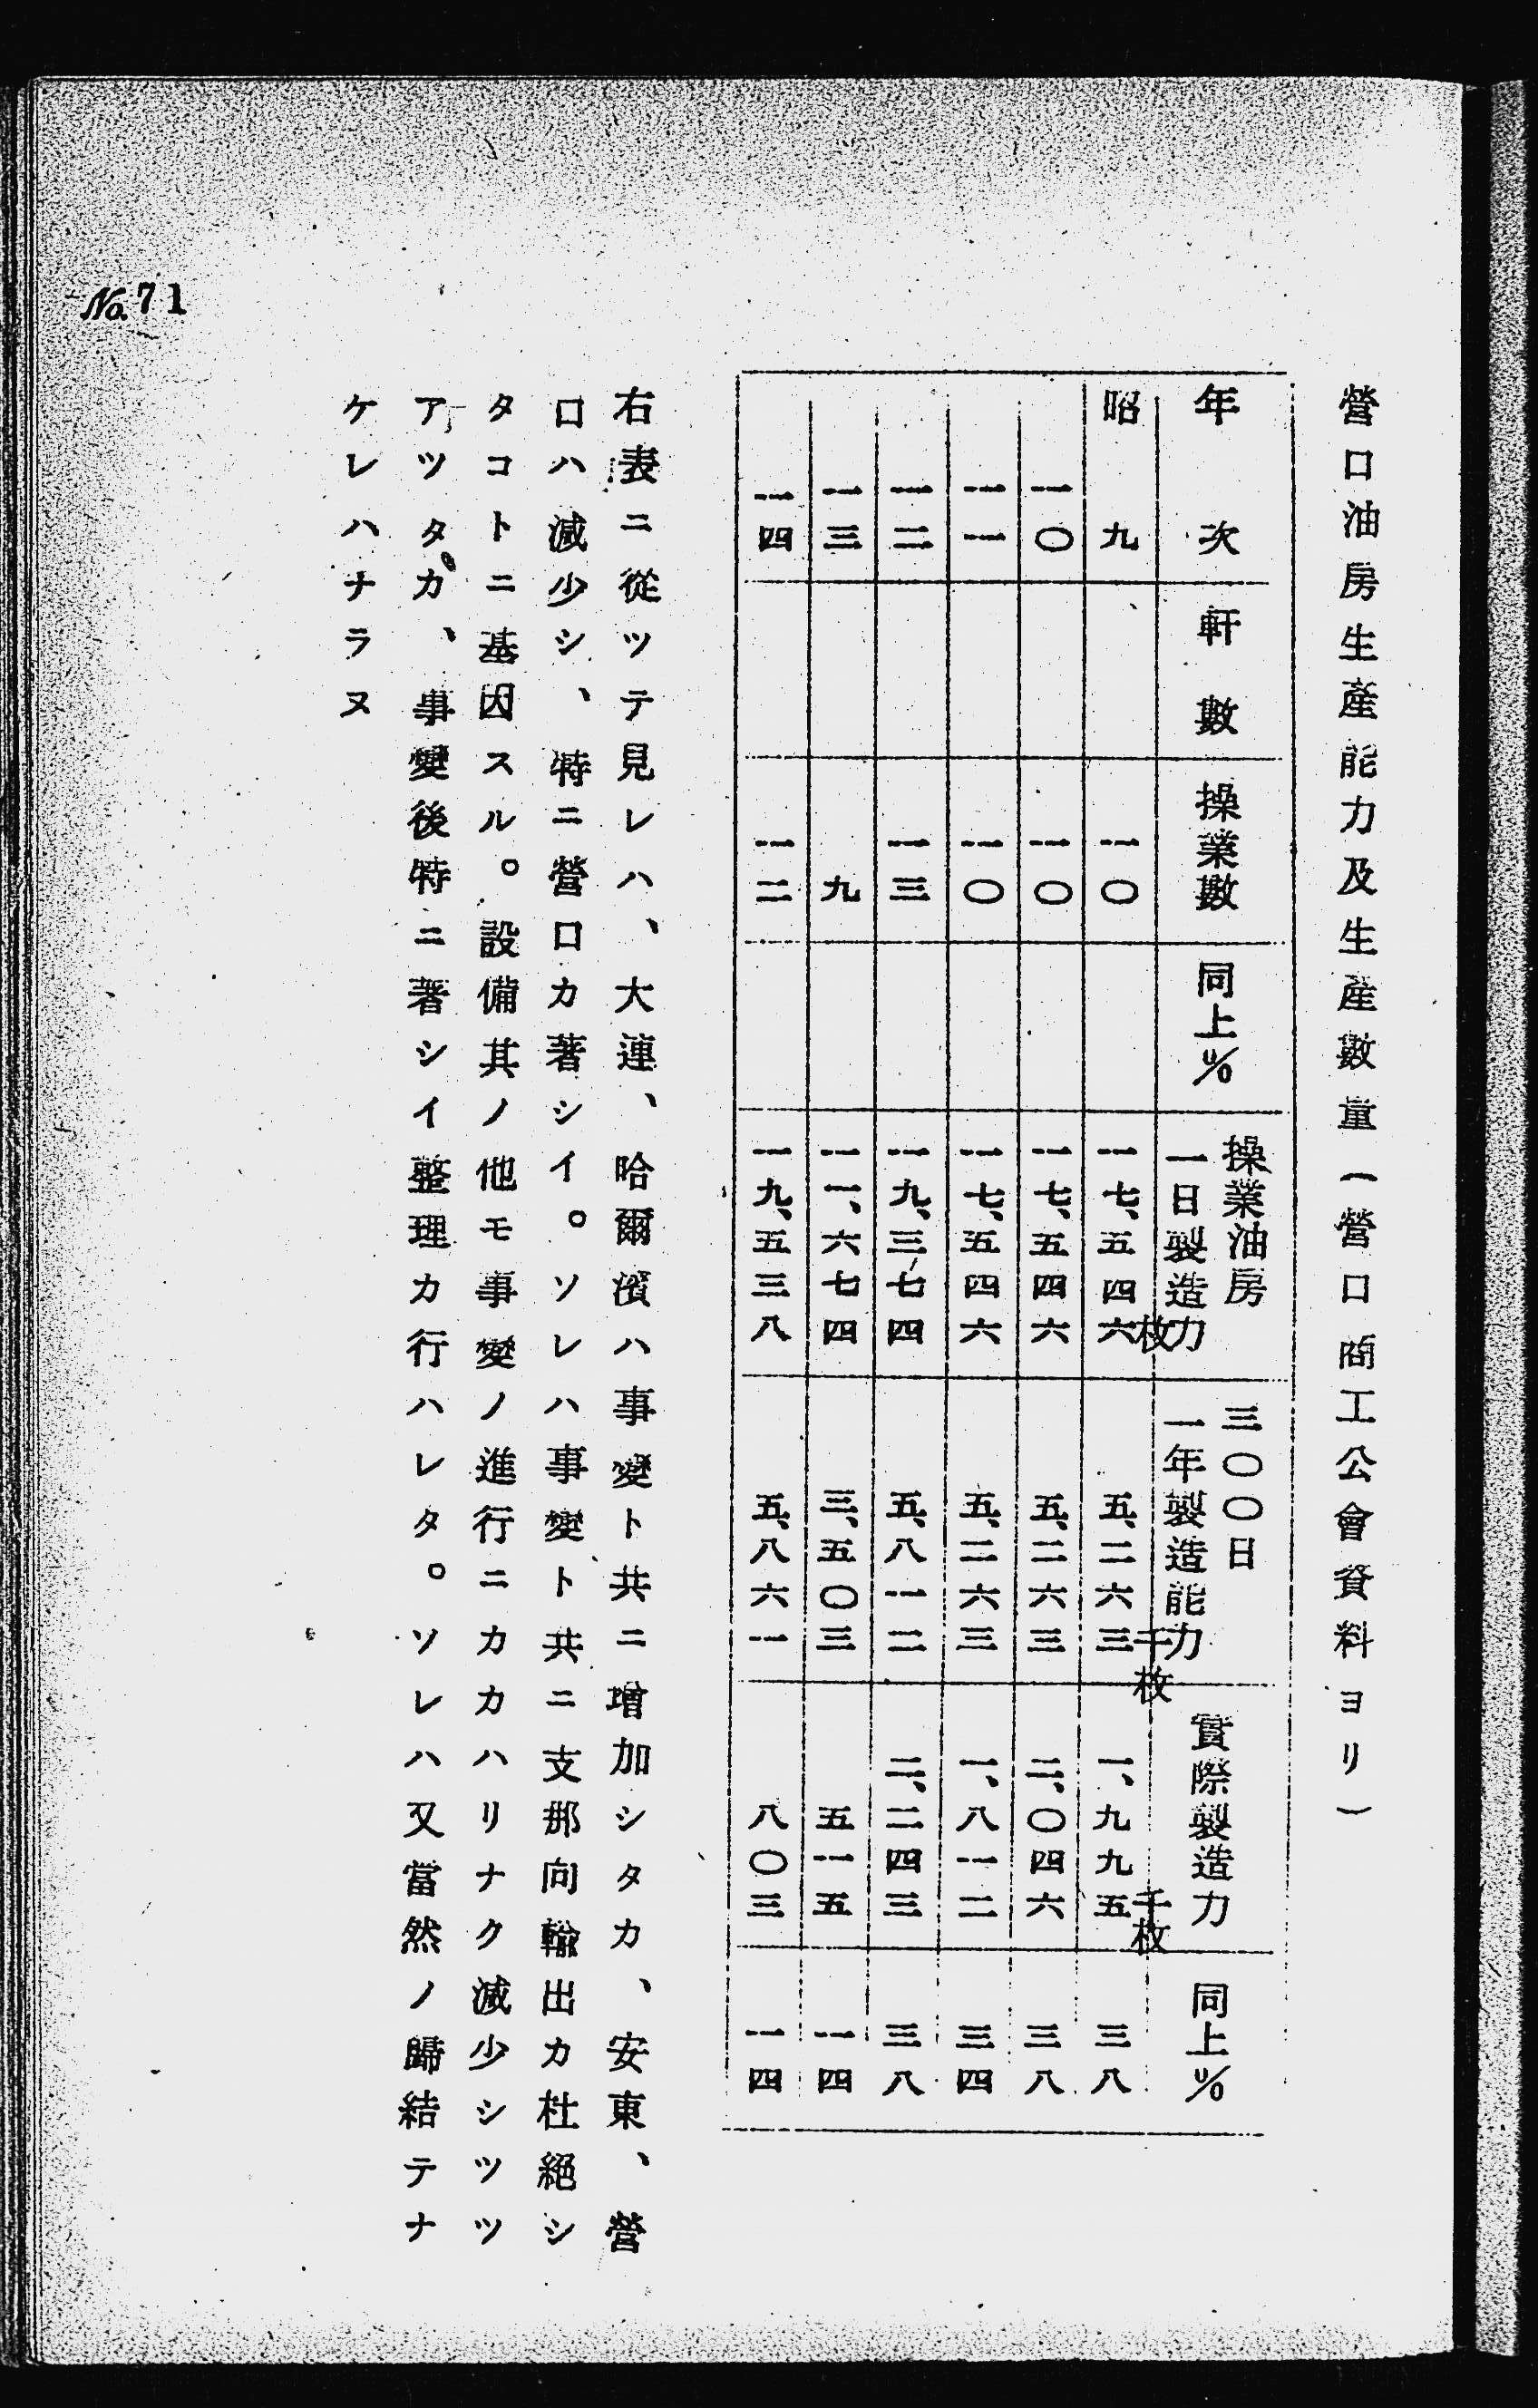 營口油房生產能力及生產數量（營口商工公會資料ヨリ）
年次 軒數 操業數 同上% 操業油房一日製造力 三〇〇日一年製造能力 實際製造力 同上%
昭九 一〇 一七、五四六枚 五、二六三千枚 一、九九五千枚 三八
一〇 一〇 一七、五四六 五、二六三 二、〇四六 三八
一一 一〇 一七、五四六 五、二六三 一、八一二 三四
一二 一三 一九、三七四 五、八一二 二、二四三 三八
一三 九 一一、六七四 三、五〇三 五一五 一四
一四 一二 一九、五三八 五、八六一 八〇三 一四
右表ニ從ツテ見レハ、大連、哈爾濱ハ事變ト共ニ增加シタカ、安東、營
口ハ減少シ、特ニ營口カ著シイ。ソレハ事變ト共ニ支那向輸出カ杜絕シ
タコトニ基因スル。設備其ノ他モ事變ノ進行ニカカハリナク減少シツツ
アツタカ、事變後特ニ著シイ整理カ行ハレタ。ソレハ又當然ノ歸結テナ
ケレハナラヌ
No.71